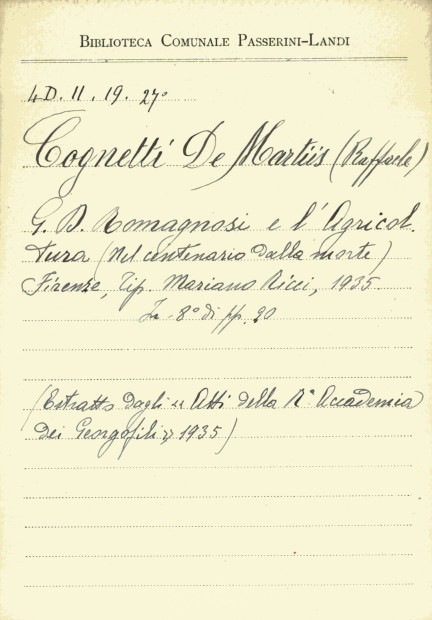 BIBLIOTECA COMUNALE PASSERINI-LANDI
4D. II. 19. 27°
Cognetti De Martiis (Raffaele)
G. D. Romagnosi e l'Agricol
tura (Nel centenario dalla morte)
Firenze, Tip. Mariano Ricci, 1935.
In-8° di pp. 20
(Estratto dagli « Atti della R.ª Accademia
dei Georgofili » 1935)